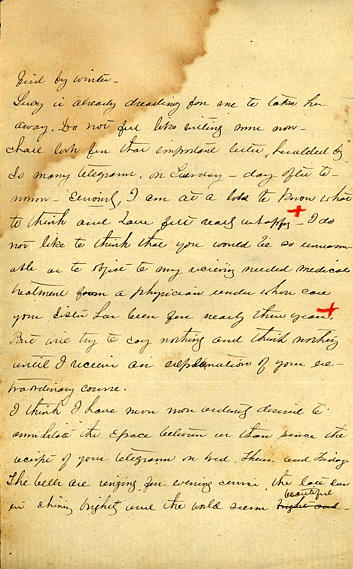 by winter -
Lucy is already dreading for me to take her
away. Do not feel like writing more now -
shall look for that important letter, heralded by
so many telegrams, on Tuesday - day after to-
morrow - Seriously, I am at a loss to know what
to think and have felt really unhappy - I do
not like to think that you would be so unreason
able as to object to my receiving needed medical
treatment from a physician under whose care
your sister has been for nearly three years -
But will try to say nothing and think nothing
until I receive an explanation of your ex-
traordinary course.
I think I have never more ardently desired to
annihilate the space between us than since the
receipt of your telegrams on Wed. Thurs. and Friday
The bells are ringing for evening service, the late sun
is shining brightly and the world seems beautiful bright and -